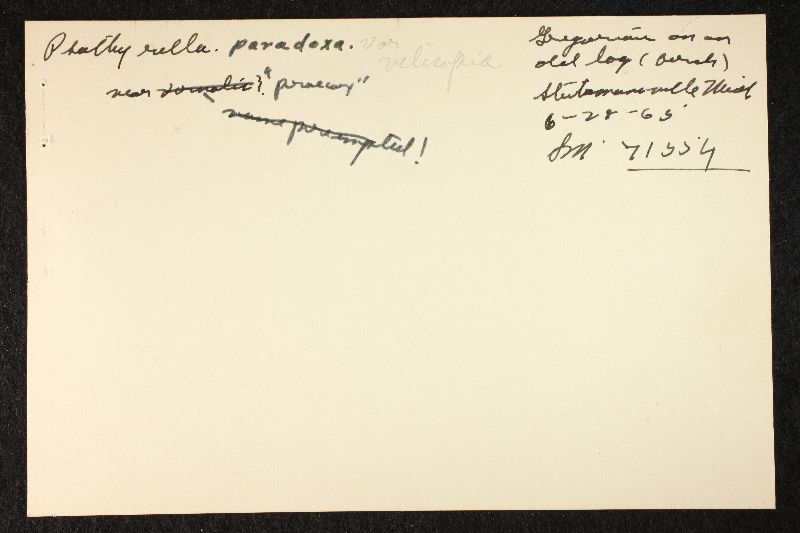 Psathyrella. paradoxa. var
velicopia
near vernalis? "praecox"
name preempted!
Gregarious on an
old log (birch)
Stutsmanville Mich
6-28-65
Sm 71554